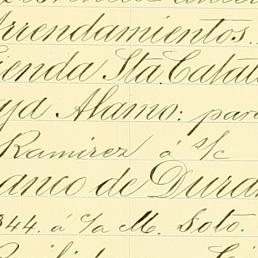 Arrendamientos.
ienda Sta. Catal
ya Alamo: para
Ramirez á s/c
anco de Dura
344. á c/a M. Soto.